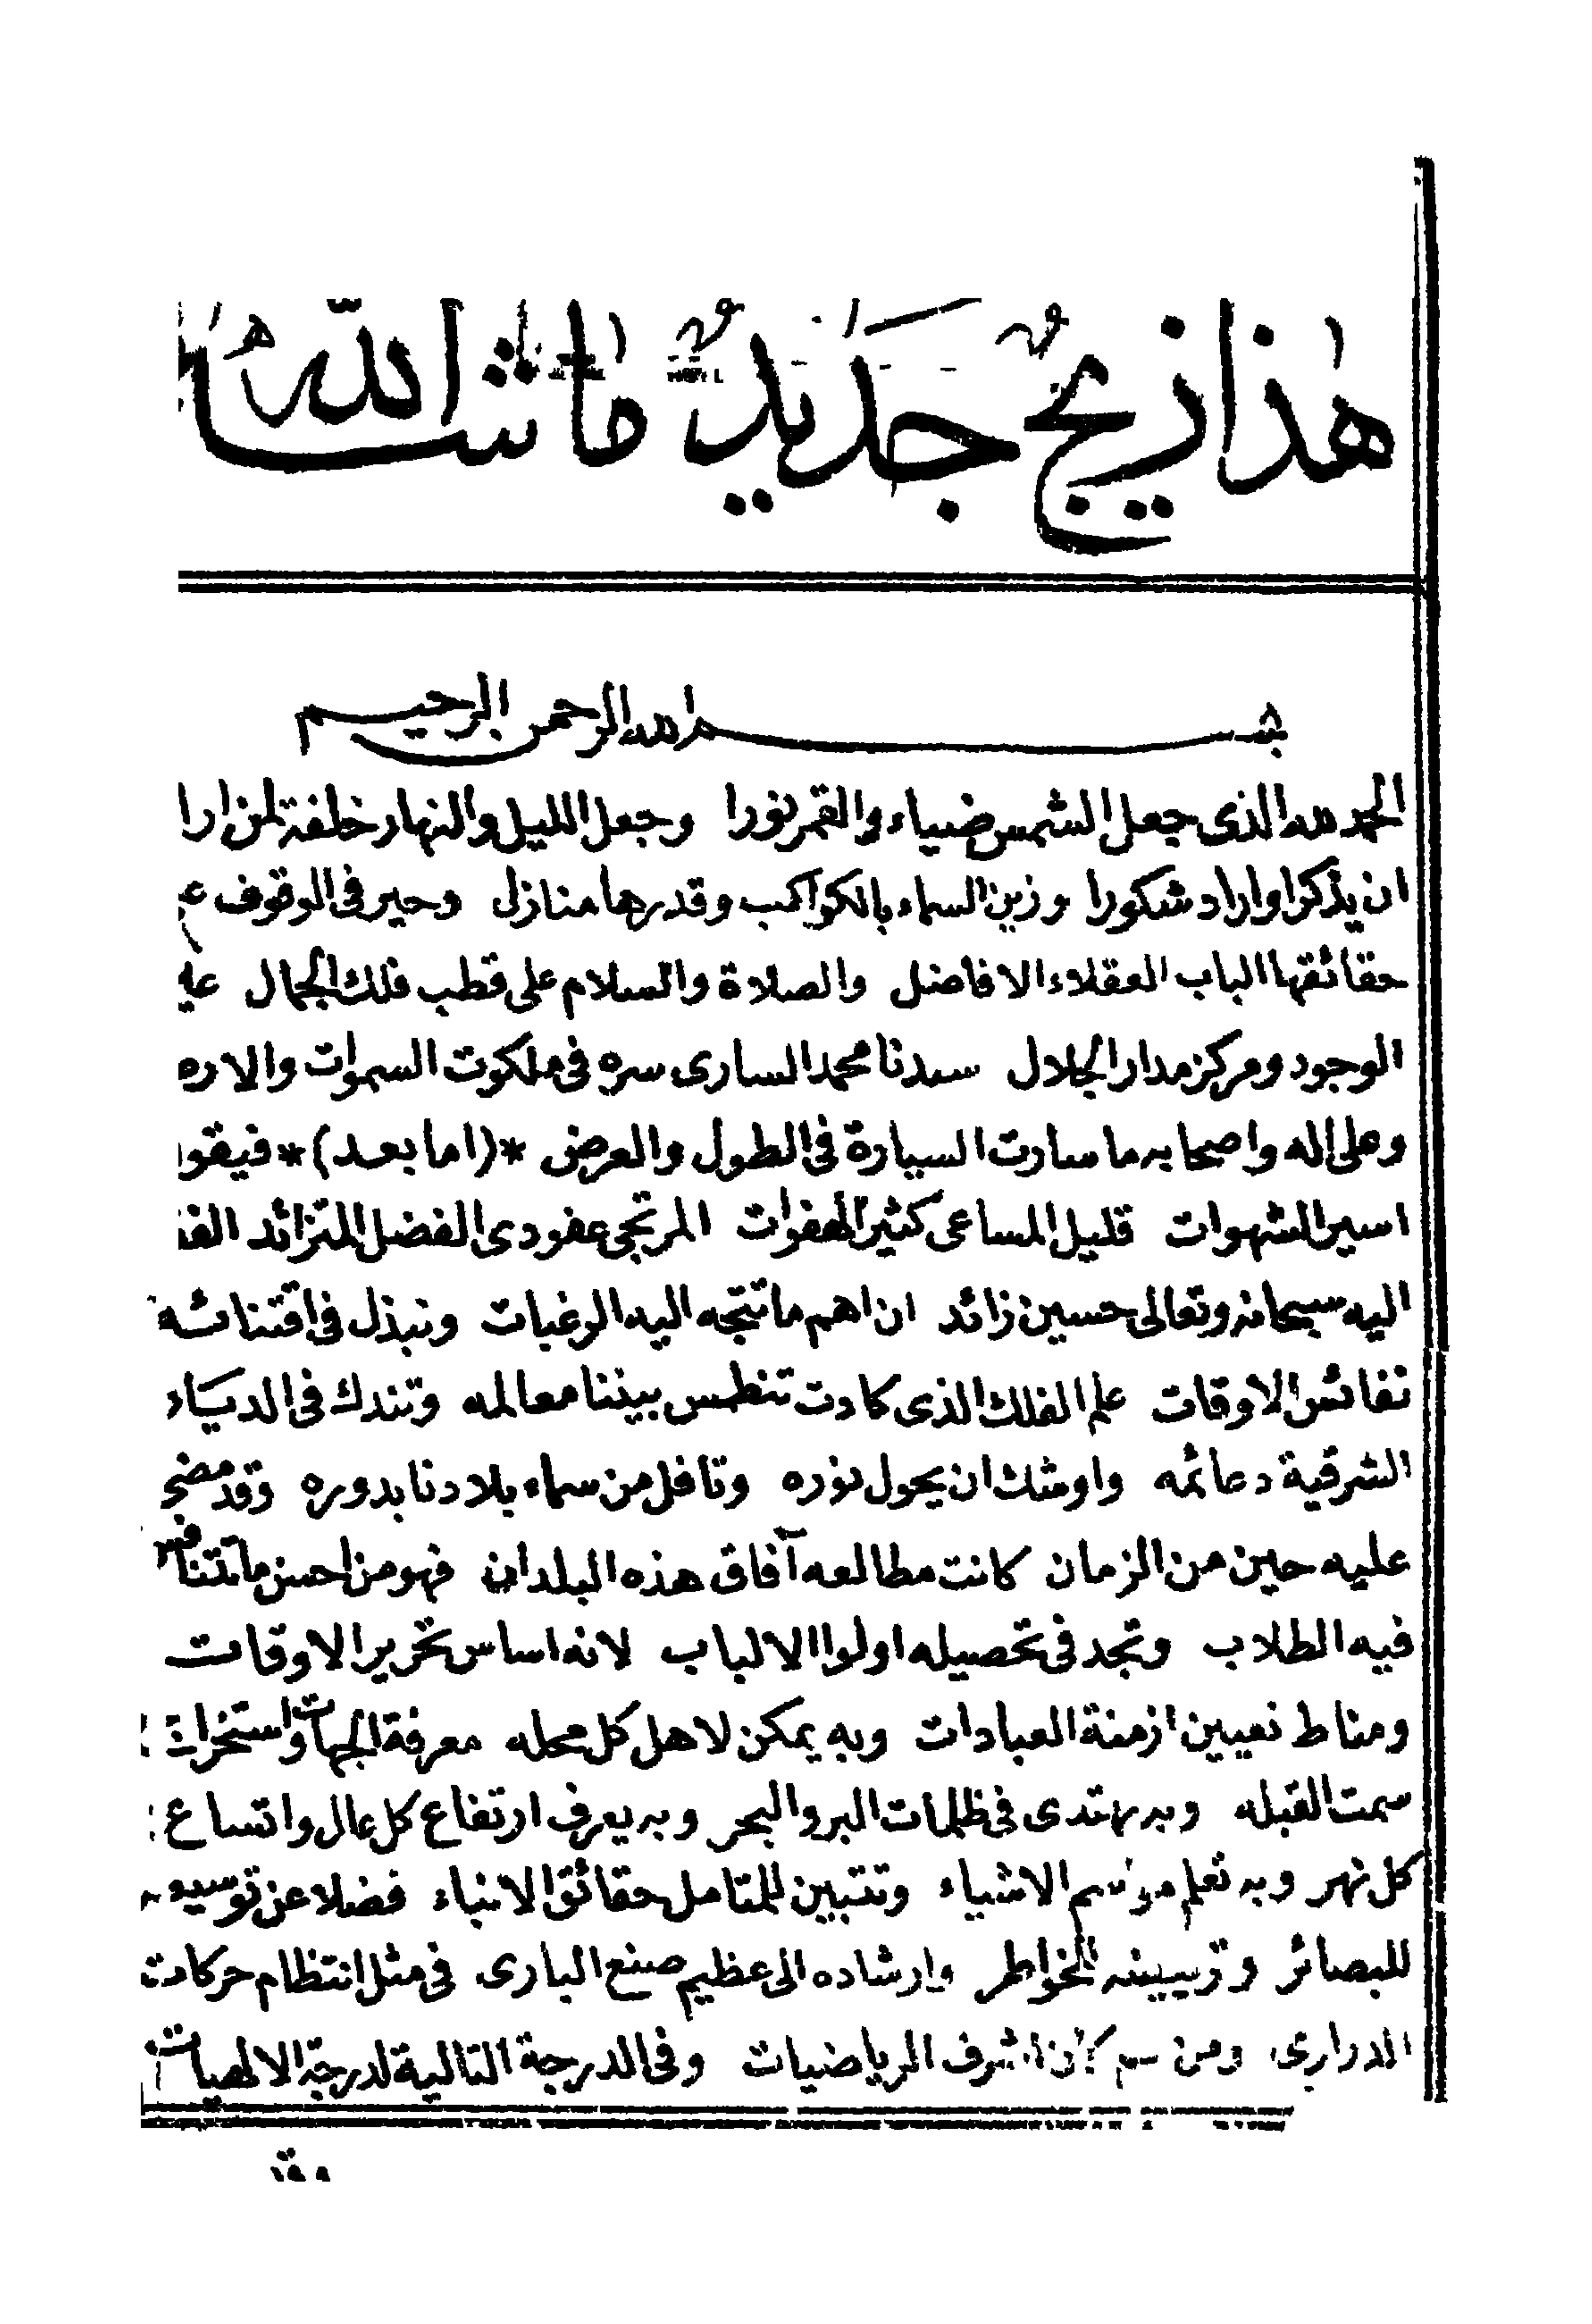 هذا زيج جديد ما شاء الله
بسم الله الرحمن الرحيم
الحمد لله الذى جعل الشمس ضياء والقمر نورا وجعل الليل والنهار خلفة لمن ارا
ان يذكر او اراد شكورا وزين السماء بالكواكب وقدرها منازل وحير فى الوقوف ع
حقائقها الباب العقلاء الافاضل والصلاة والسلام على قطب فلك الجمال
الوجود ومركز مدار الجلال سيدنا محمد السارى سره فى ملكوت السموات والار
وعلى اله واصحابه ما سارت السيارة فى الطول والعرض *(اما بعد)* فيقو
اسير الشهوات قليل المساعى كثير الهفوات المرتجى عفو ذى الفضل المتزائد
اليه سبحانه وتعالى حسين زائد ان اهم ما تتجه اليه الرغبات وتبذل فى اقتنائه
نفائس الاوقات علم الفلك الذى كادت تنطمس بيننا معالمه وتندك فى الديار
الشرقية دعائمه واوشك ان يحول نوره وتافل من سماء بلادنا بدوره وقد مضى
عليه حين من الزمان كانت مطالعه آفاق هذه البلدان فهو من احسن ما يتنافس
فيه الطلاب وتجد فى تحصيله اولوا الالباب لانه اساس تحرير الاوقات
ومناط تعيين ازمنة العبادات وبه يمكن لاهل كل محله معرفة الجهات واستخراج
سمت القبله وبه يهتدى فى ظلمات البر والبحر وبه يعرف ارتفاع كل عال واتساع
كل نهر وبه تعلم مواسم الاشياء وتتبين للمتامل حقائق الانباء فضلا عن
للبصائر وتزيينه الخواطر وارشاده الى عظيم صنع البارى فى مثل انتظام حركات
الدرارى ومن ثم كان اشرف الرياضيات وفى الدرجة التالية لدرجة الالهيات